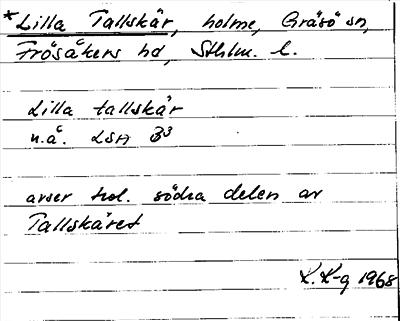 *Lilla Tallskär, holme, Gräsö sn,
Frösåkers hd, Sthlm. l.
Lilla tallskär
n.ä. LSA B3
avser trol. södra delen av
Tallskäret
K.K-g 1968